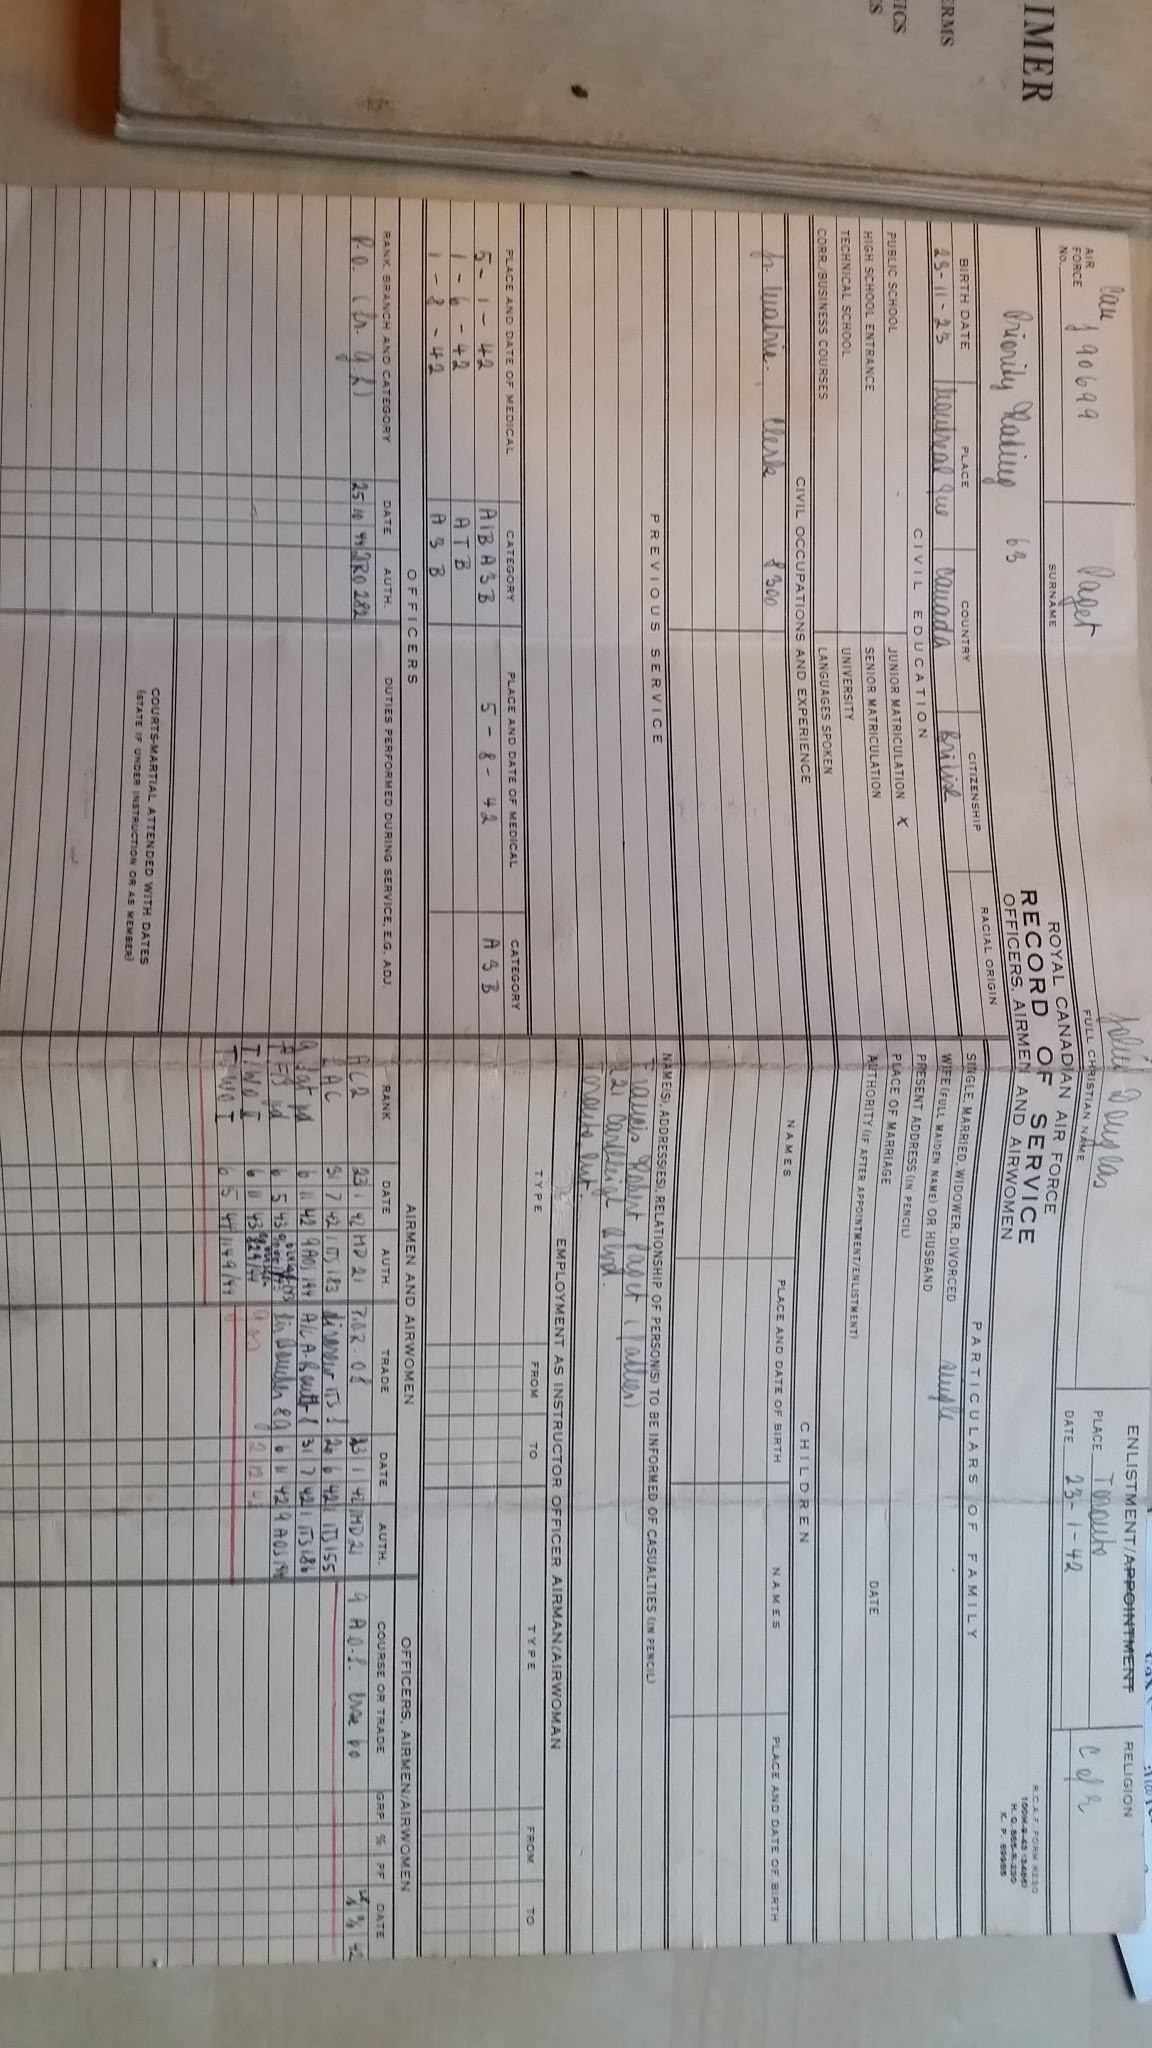 IMER
ERMS
ICS
ES
ROYAL CANADIAN AIR FORCE
RECORD OF SERVICE
OFFICERS, AIRMEN AND AIRWOMEN
AIR FORCE No. Can J 90699
Paget
SURNAME
Douglas
FULL CHRISTIAN NAME
ENLISTMENT/APPOINTMENT
PLACE Toronto
DATE 23-1-42
RELIGION
C of E
R.C.A.F. FORM R230
H. Q. 885-R-230
Priority Rating 63
BIRTH DATE PLACE COUNTRY CITIZENSHIP RACIAL ORIGIN
23-11-23 Montreal Que Canada British
CIVIL EDUCATION
PUBLIC SCHOOL
HIGH SCHOOL ENTRANCE
TECHNICAL SCHOOL
CORR./BUSINESS COURSES
JUNIOR MATRICULATION X
SENIOR MATRICULATION
UNIVERSITY
LANGUAGES SPOKEN
CIVIL OCCUPATIONS AND EXPERIENCE
Jr. Matric. Clerk
PREVIOUS SERVICE
PLACE AND DATE OF MEDICAL CATEGORY PLACE AND DATE OF MEDICAL CATEGORY
5-1-42 A1B A3B 5-8-42 A3B
1-6-42 ATB
1-8-42 A3B
OFFICERS
RANK, BRANCH AND CATEGORY DATE AUTH. DUTIES PERFORMED DURING SERVICE, E.G. ADJ.
25 10 44
COURTS-MARTIAL ATTENDED WITH DATES
(STATE IF UNDER INSTRUCTION OR AS MEMBER)
PARTICULARS OF FAMILY
SINGLE, MARRIED, WIDOWER, DIVORCED single
WIFE (FULL MAIDEN NAME) OR HUSBAND
PRESENT ADDRESS (IN PENCIL)
PLACE OF MARRIAGE DATE
AUTHORITY (IF AFTER APPOINTMENT/ENLISTMENT)
CHILDREN
NAMES PLACE AND DATE OF BIRTH NAMES PLACE AND DATE OF BIRTH
NAME(S), ADDRESS(ES), RELATIONSHIP OF PERSON(S) TO BE INFORMED OF CASUALTIES (IN PENCIL)
Francis Robert Paget (Father)
Blvd.
Toronto Ont
EMPLOYMENT AS INSTRUCTOR OFFICER AIRMAN/AIRWOMAN
TYPE FROM TO TYPE FROM TO
AIRMEN AND AIRWOMEN
RANK DATE AUTH. TRADE DATE AUTH.
AC2 23 1 42 MD 21 23 1 42 MD21
LAC 31 7 42 1 ITS 183 Aircrew ITS 20 6 42 1 ITS 155
6 11 42 9 AOS 194 31 7 42 1 ITS 186
6 5 43 Air Bomber 6 11 42 9 AOS
T. WO II 6 11 43
T. WO I 6 5 44 149/44
OFFICERS, AIRMEN/AIRWOMEN
COURSE OR TRADE GRP. % PF DATE
9 A.O.S. 60